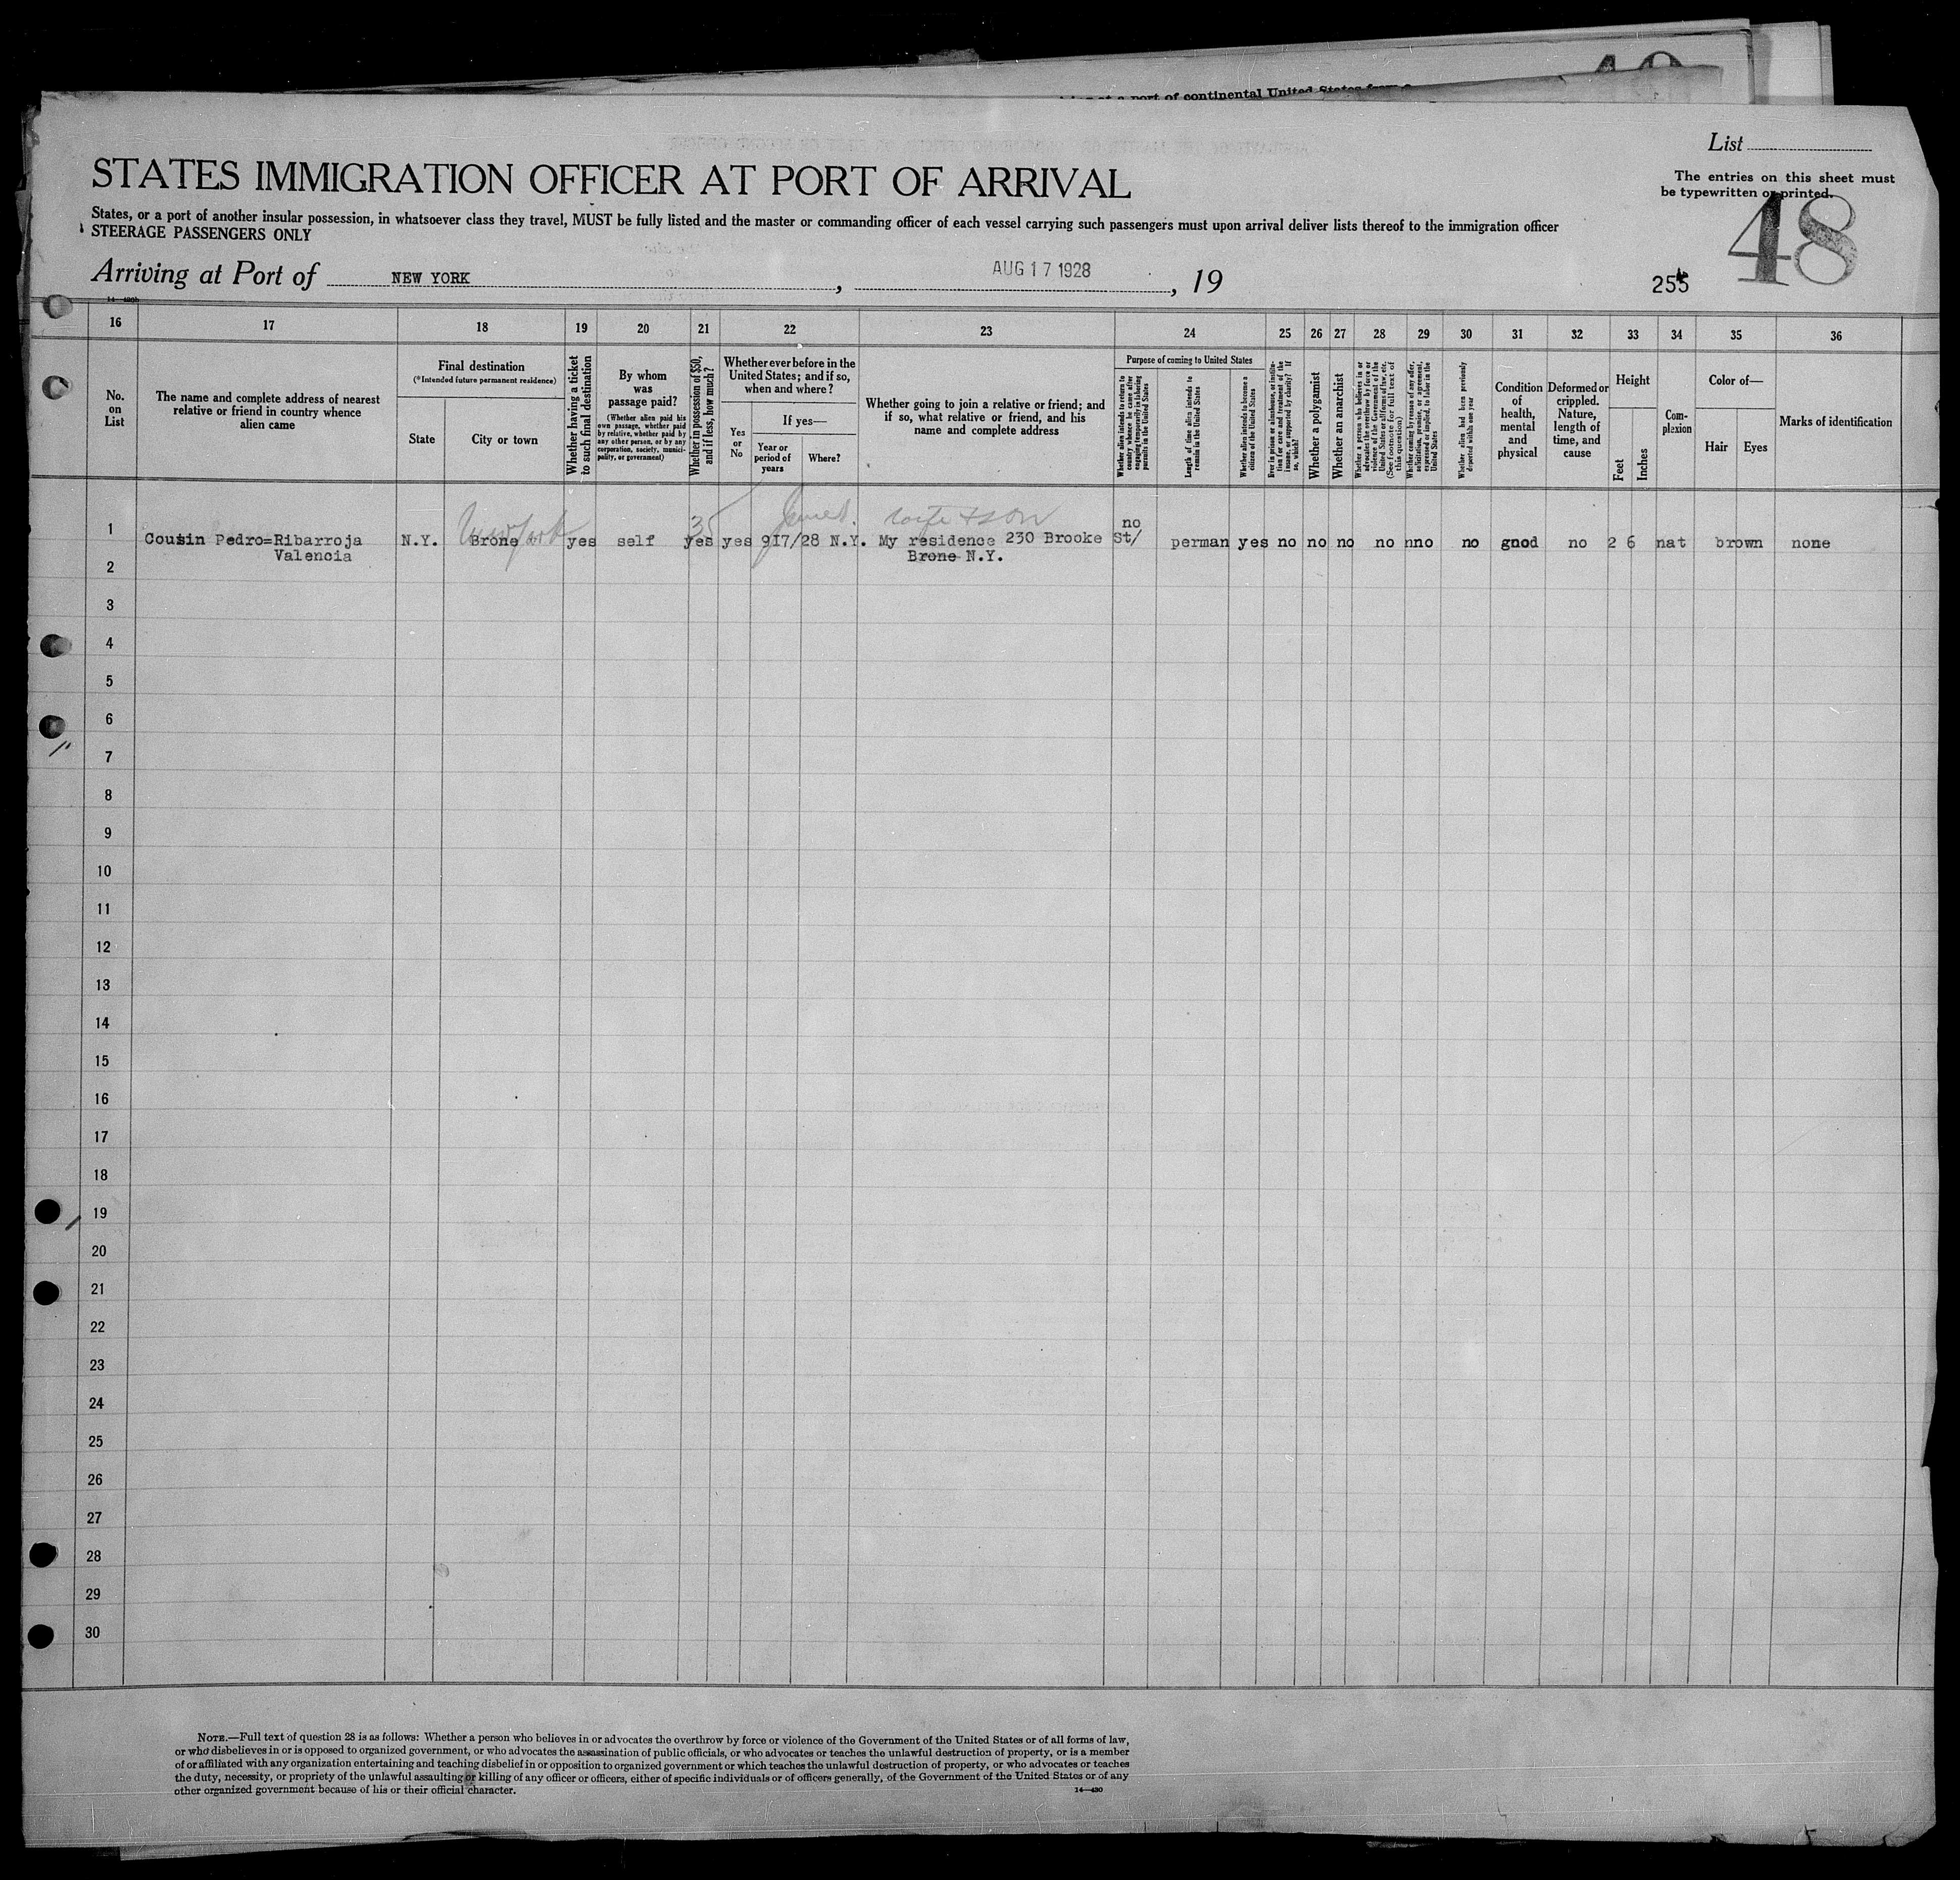 a port of continental United States from a
List
STATES IMMIGRATION OFFICER AT PORT OF ARRIVAL
The entries on this sheet must
be typewritten or printed.
48
States, or a port of another insular possession, in whatsoever class they travel, MUST be fully listed and the master or commanding officer of each vessel carrying such passengers must upon arrival deliver lists thereof to the immigration officer
STEERAGE PASSENGERS ONLY
Arriving at Port of NEW YORK , AUG 17 1928 , 19
255
14—430b
16 17 18 19 20 21 22 23 24 25 26 27 28 29 30 31 32 33 34 35 36
No.
on
List
The name and complete address of nearest
relative or friend in country whence
alien came
Final destination
(*Intended future permanent residence)
State
City or town
Whether having a ticket
to such final destination
By whom
was
passage paid?
(Whether alien paid his
own passage, whether paid
by relative, whether paid by
any other person, or by any
corporation, society, munici-
pality, or government)
Whether in possession of $50,
and if less, how much?
Whether ever before in the
United States; and if so,
when and where?
Yes
or
No
If yes—
Year or
period of
years
Where?
Whether going to join a relative or friend; and
if so, what relative or friend, and his
name and complete address
Purpose of coming to United States
Whether alien intends to return to
country whence he came after
engaging temporarily in laboring
pursuits in the United States
Length of time alien intends to
remain in the United States
Whether alien intends to become a
citizen of the United States
Ever in prison or almshouse, or institu-
tion for care and treatment of the
insane, or supported by charity? If
so, which?
Whether a polygamist
Whether an anarchist
Whether a person who believes in or
advocates the overthrow by force or
violence of the Government of the
United States or all forms of law, etc.
(See footnote for full text of
this question)
Whether coming by reason of any offer,
solicitation, promise, or agreement,
expressed or implied, to labor in the
United States
Whether alien had been previously
deported within one year
Condition
of
health,
mental
and
physical
Deformed or
crippled.
Nature,
length of
time, and
cause
Height
Feet
Inches
Com-
plexion
Color of—
Hair
Eyes
Marks of identification
35 wife + son no
1 Cousin Pedro=Ribarroja N.Y. Brone yes self yes yes 917/28 N.Y. My residence 230 Brooke St/ perman yes no no no no nno no gnod no 2 6 nat brown none
Valencia Brone N.Y.
2
3
4
5
6
7
8
9
10
11
12
13
14
15
16
17
18
19
20
21
22
23
24
25
26
27
28
29
30
NOTE.—Full text of question 28 is as follows: Whether a person who believes in or advocates the overthrow by force or violence of the Government of the United States or of all forms of law,
or who disbelieves in or is opposed to organized government, or who advocates the assassination of public officials, or who advocates or teaches the unlawful destruction of property, or is a member
of or affiliated with any organization entertaining and teaching disbelief in or opposition to organized government or which teaches the unlawful destruction of property, or who advocates or teaches
the duty, necessity, or propriety of the unlawful assaulting or killing of any officer or officers, either of specific individuals or of officers generally, of the Government of the United States or of any
other organized government because of his or their official character.
14—430